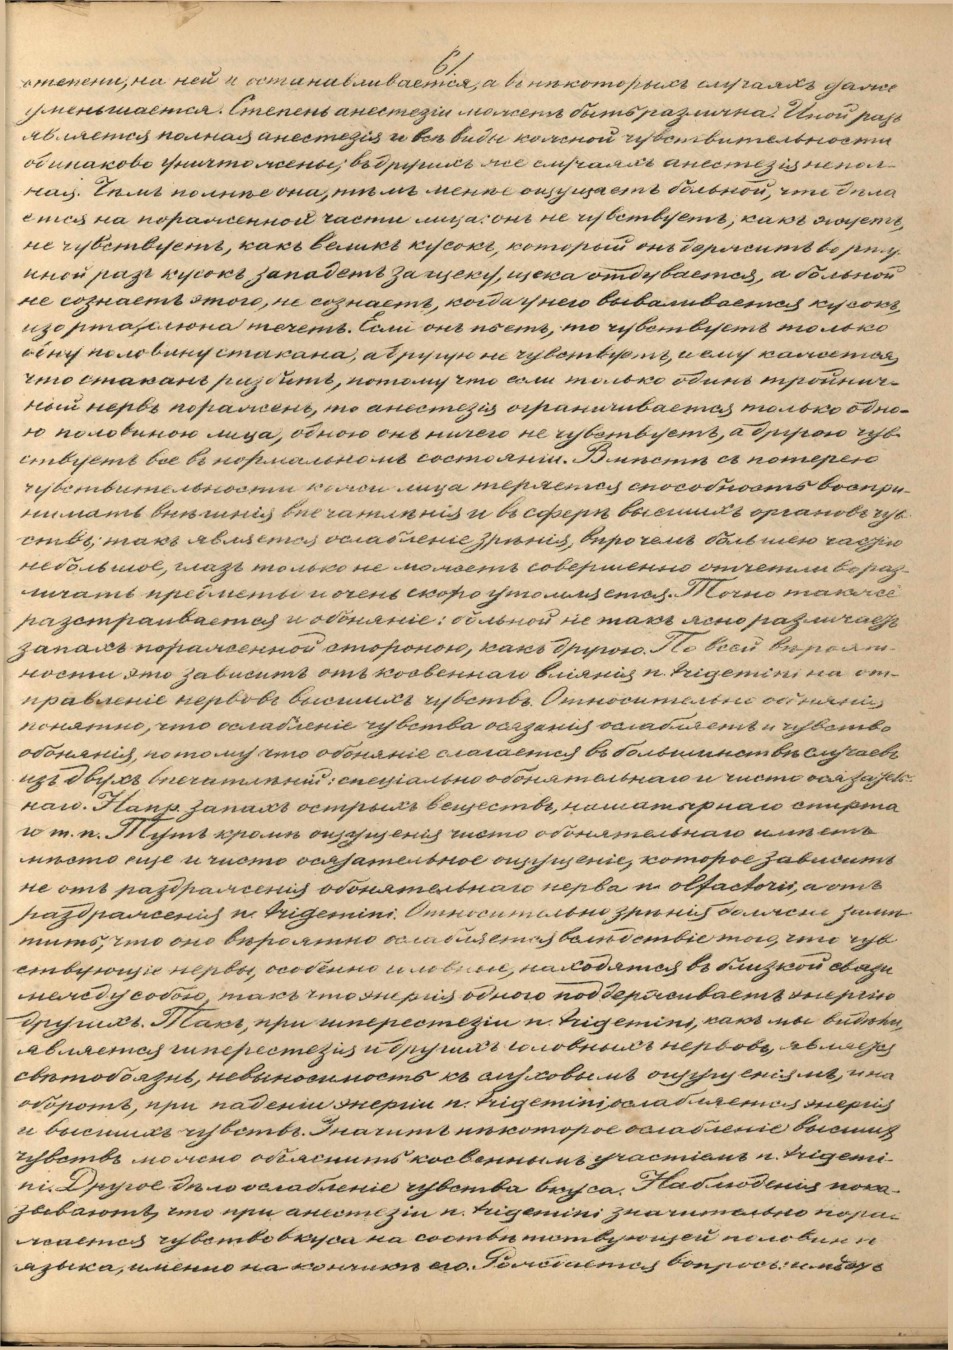 61
степени, на ней и останавливается, а въ нѣкоторыхъ случаяхъ даже
уменьшается. Степень анестезіи можетъ быть различна. Иной разъ
является полная анестезія и всѣ виды кожной чувствительности
одинаково уничтожены; въ другихъ же случаяхъ анестезія непол-
ная. Чѣмъ полнѣе она, тѣмъ менѣе ощущаетъ больной, что дѣла
ется на пораженной части лица: онъ не чувствуетъ, какъ жуетъ,
не чувствуетъ, какъ великъ кусокъ, который онъ держитъ во рту.
иной разъ кусокъ западетъ за щеку, щека отдувается, а больной
не сознаетъ этого, не сознаетъ, когда у него вываливается кусокъ
изо рта, слюна течетъ. Если онъ пьетъ, то чувствуетъ только
одну половину стакана, а другую не чувствуетъ, и ему кажется,
что стаканъ разбитъ, потому что если только одинъ тройнич-
ный нервъ пораженъ, то анестезія ограничивается только одно-
ю половиною лица, одною онъ ничего не чувствуетъ, а другою чув
ствуетъ все въ нормальномъ состояніи. Вмѣстѣ съ потерею
чувствительности кожи лица теряется способность воспри-
нимать внѣшнія впечатлѣнія и въ сферѣ высшихъ органовъ чув
ствъ; такъ является ослабленіе зрѣнія, впрочемъ большею частію
небольшое, глазъ только не можетъ совершенно отчетливо раз-
личать предметы и очень скоро утомляется. Точно также
разстраивается и обоняніе: больной не такъ ясно различаетъ
запахъ пораженной стороною, какъ другою. По всей вѣроят-
ности это зависитъ отъ косвеннаго вліянія n. trigemini на от-
правленіе нервовъ высшихъ чувствъ. Относительно обонянія
понятно, что ослабленіе чувства осязанія ослабляетъ и чувство
обонянія, потому что обоняніе слагается въ большинствѣ случаевъ
изъ двухъ впечатлѣній: спеціально обонятельнаго и чисто осязатель-
наго. Напр. запахъ острыхъ веществъ, нашатырнаго спирта
и т. п. Тутъ кромѣ ощущенія чисто обонятельнаго имѣетъ
мѣсто еще и чисто осязательное ощущеніе, которое зависитъ
не отъ раздраженія обонятельнаго нерва n. olfactorii, а отъ
раздраженія n. trigemini. Относительно зрѣнія должно замѣ
тить, что оно вѣроятно ослабляется вслѣдствіе того, что чув
ствующіе нервы, особенно головные, находятся въ близкой связи
между собою, такъ что энергія одного поддерживаетъ энергію
другихъ. Такъ, при гиперестезіи n. trigemini, какъ мы видѣли,
является гиперестезія и другихъ головныхъ нервовъ, является
свѣтобоязнь, невыносимость къ слуховымъ ощущеніямъ, и на
оборотъ, при паденіи энергіи n. trigemini, ослабляется энергія
и высшихъ чувствъ. Значитъ нѣкоторое ослабленіе высшихъ
чувствъ можно объяснить косвеннымъ участіемъ n. trigemi-
ni. Другое дѣло ослабленіе чувства вкуса. Наблюденія пока-
зываютъ, что при анестезіи n. trigemini значительно пора-
жается чувство вкуса на соотвѣтствующей половинѣ
языка, именно на кончикѣ его. Рождается вопросъ: имѣетъ